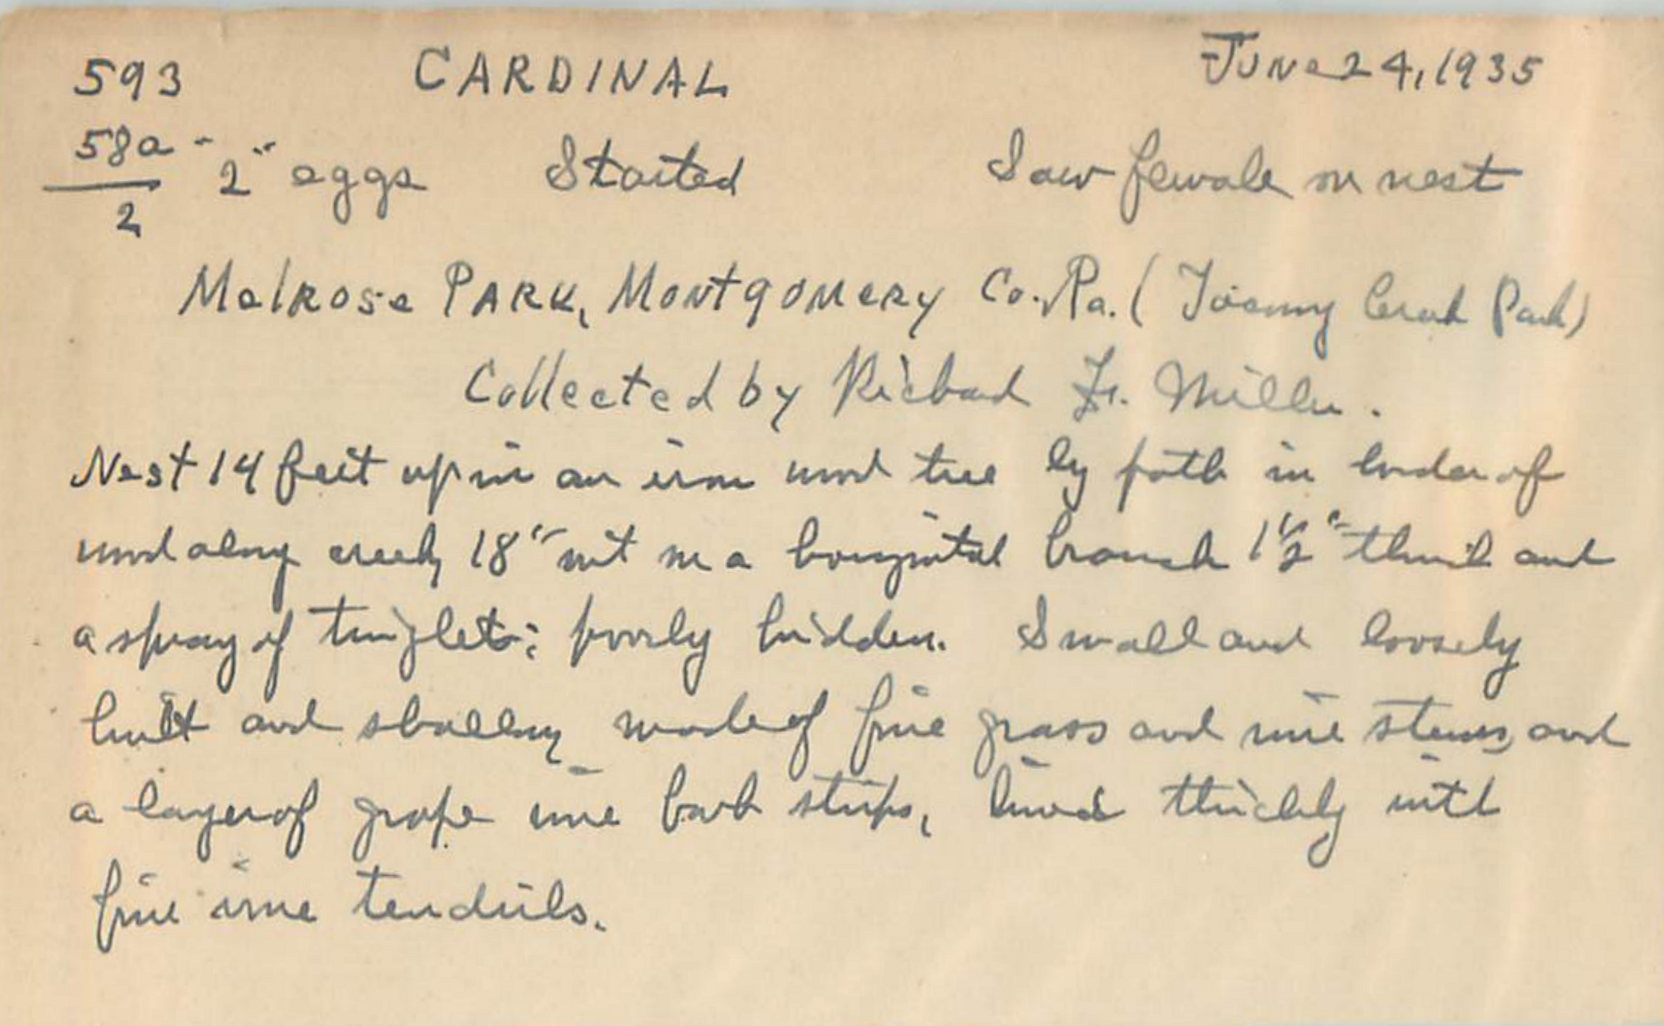 593 CARDINAL June 24, 1935
58a - 2" eggs Started Saw female on nest
2
Melrose Park, Montgomery Co. Pa. (Tacony Creek Park)
Collected by Richard F. Miller.
Nest 14 feet up in an iron wood tree by path in border of
wood along creek, 18" out on a horizontal branch 1½" thick and
a spray of twiglets; poorly hidden. Small and loosely
built and shallow, made of fine grass and vine stems, and
a layer of grape vine bark strips, lined thickly with
fine vine tendrils.